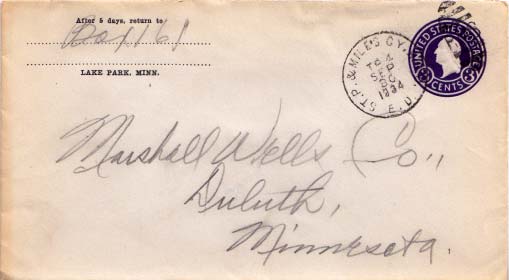 After 5 days, return to
Box 161
LAKE PARK, MINN.
ST. P. & MILES CY.
TR 4
SEP
20
1934
E. D.
UNITED STATES POSTAGE
3 CENTS 3
Marshall Wells Co.,
Duluth,
Minnesota.